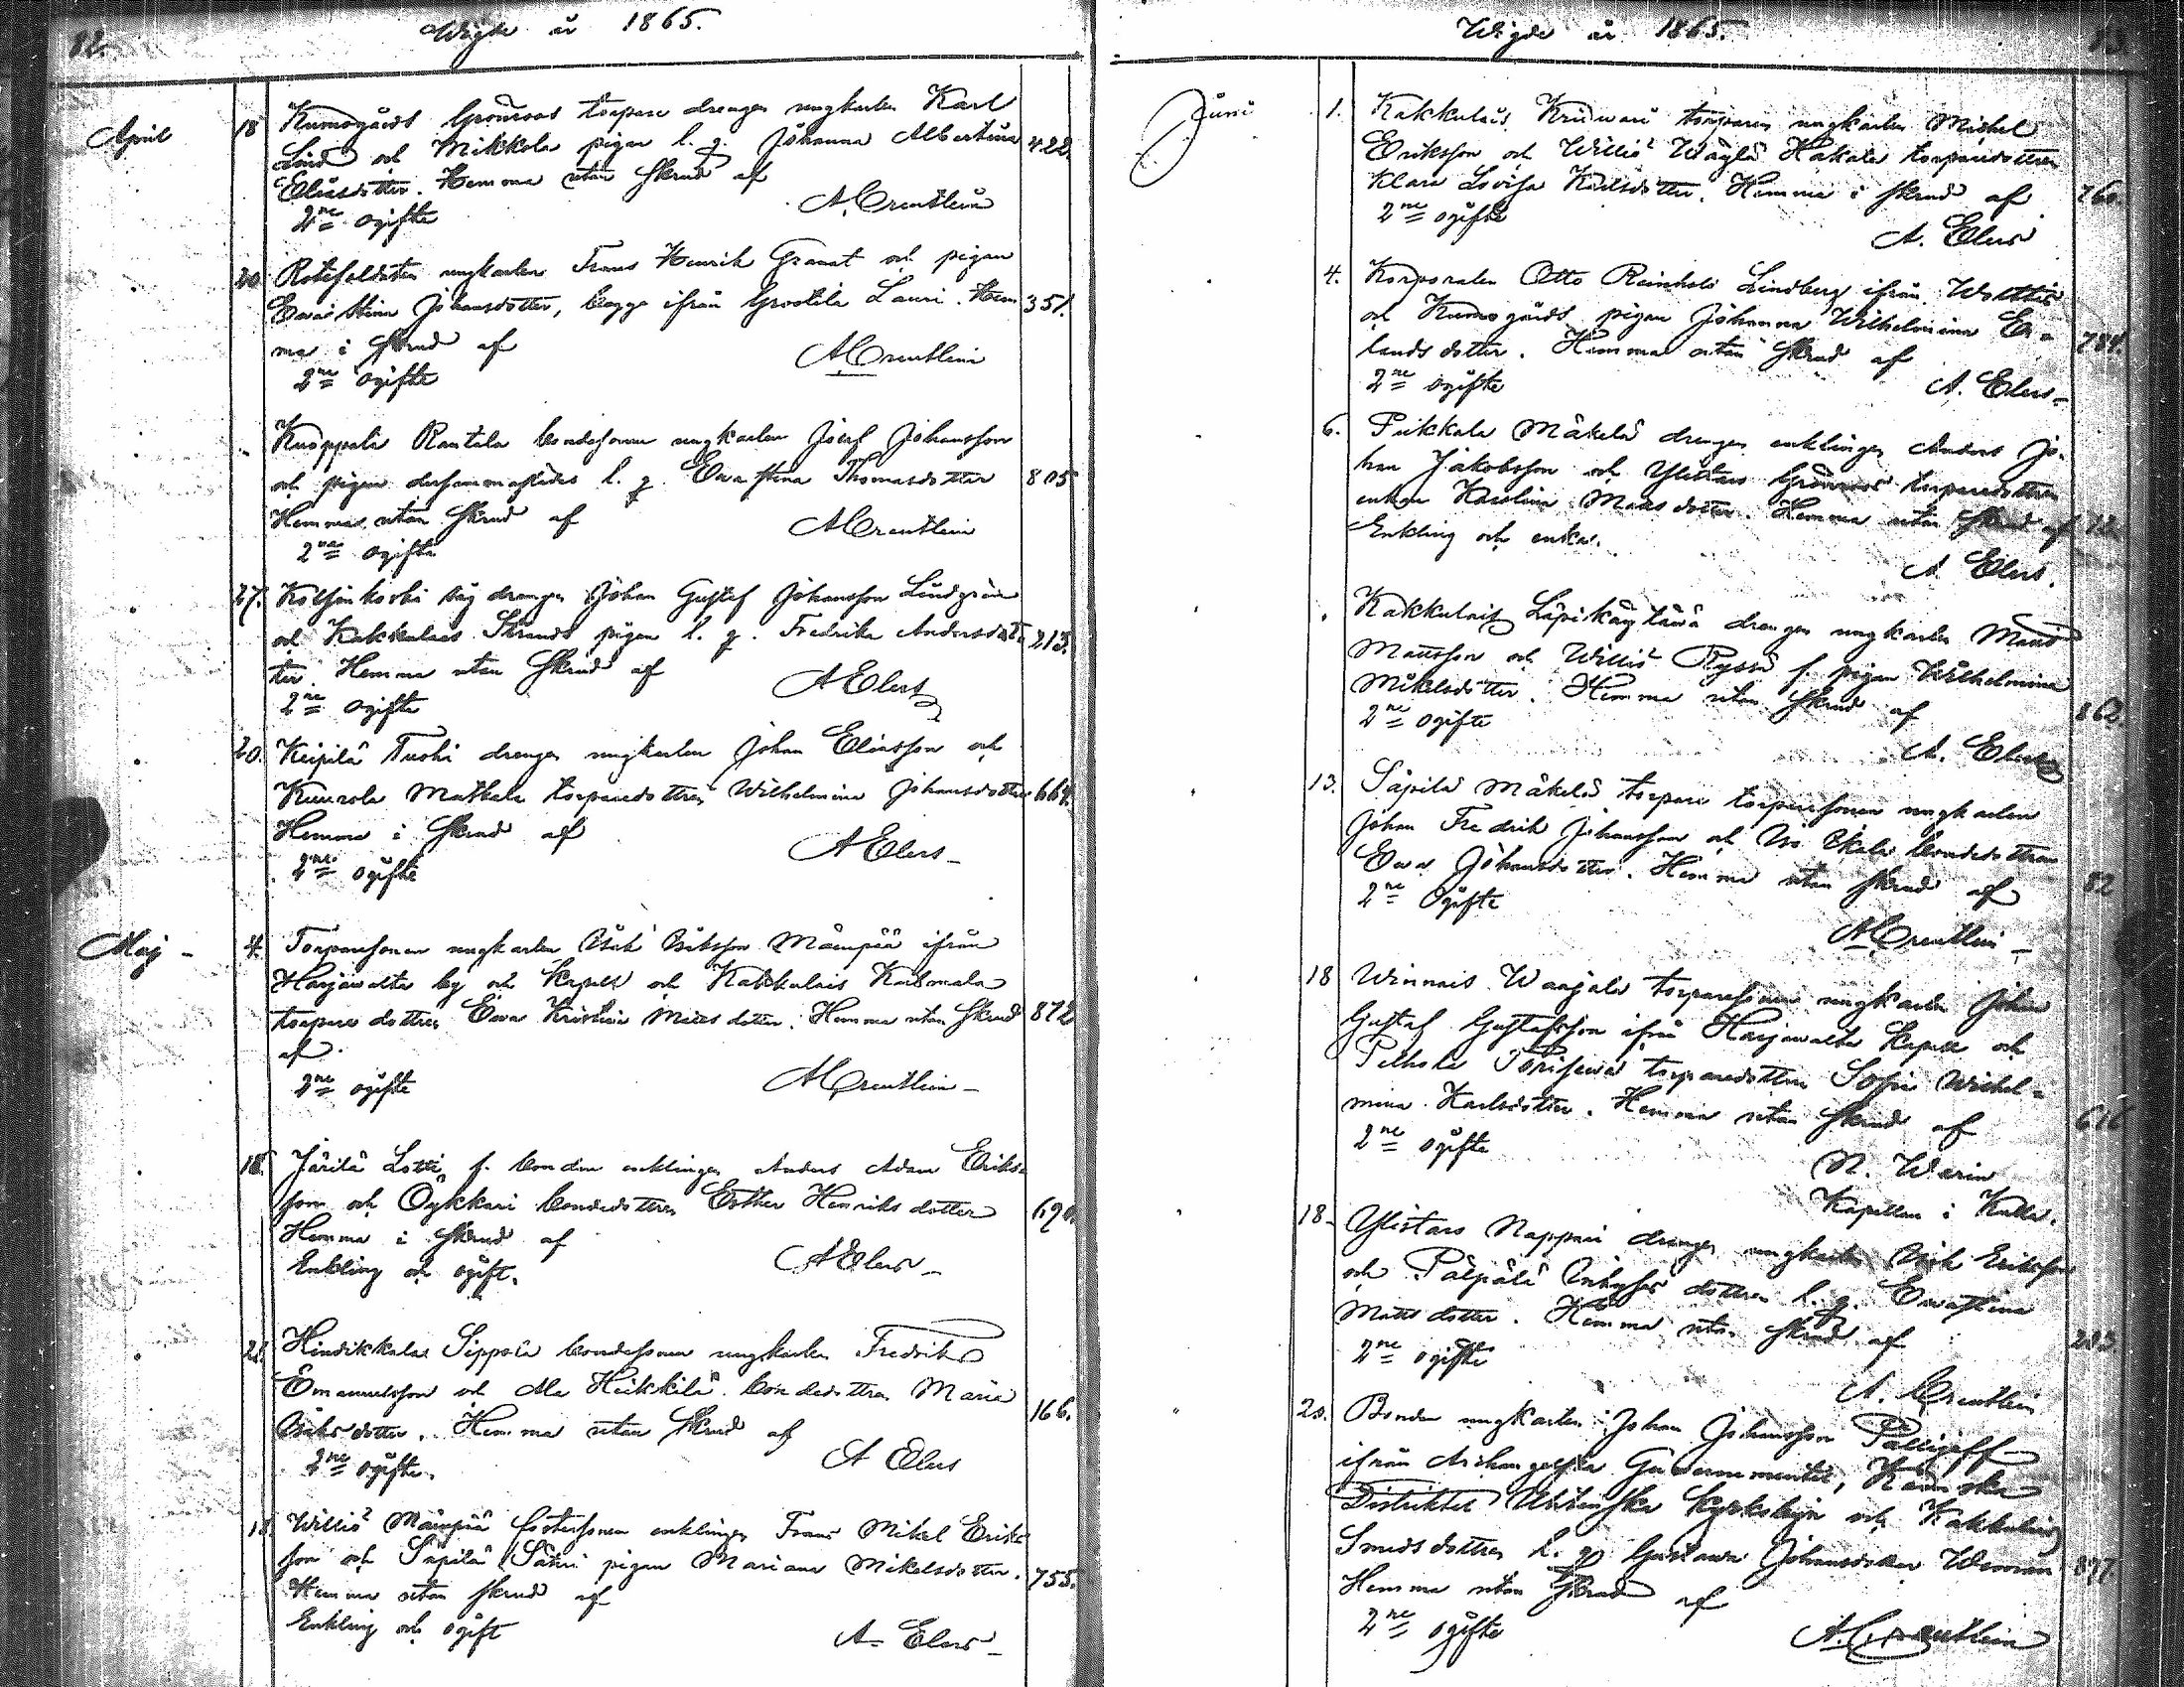 12.
Wigde år 1865.
April
18 Kumogårds Grönroos torpare drengen ungkarlen Karl
Lind och Mikkola pigan l. g. Johanna Albertina 422.
Eliasdotter. Hemma utan skrud af
2ne ogifte
A. Creutlein
20. Rotesoldaten ungkarlen Frans Henrik Granat och pigan
Eva Stina Johansdotter, begge ifrån Grootila Lauri. Hem 351.
ma i skrud af
A Creutlein
2ne ogifte
Knoppala Rantala bondesonen ungkarlen Josef Johansson
och pigan dersammastädes l. g. Eva Stina Thomasdotter 805
Hemma utan skrud af
A Creutlein
2ne ogifte
27. såg drengen Johan Gustef Johansson Lindgren
och Kakkulais Strands pigan l. g. Fredrika Andersdot 213.
ter. Hemma utan skrud af
A Elers
2ne ogifte
30. Keipilä Tuohi drengen ungkarlen Johan Eliasson och
Kuurola Matkala torparedottren Wilhelmina Johansdotter 664.
Hemma i skrud af
A Elers
2ne ogifte
Maj 4. Torparesonen ungkarlen Isak Isaksson Mämpää ifrån
Harjawalta by och kapell och Kakkulais
torpare dottren Eva Kristina Matts dotter. Hemma utan skrud 872
af
2ne ogifte
A Creutlein
18. Järilä Lotti f. bonden enklingen Anders Adam Eriks
son och Öykkäri bondedottren Esther Henriks dotter 690
Hemma i skrud af
A Elers
Enkling och ogift.
21. Hindikkala Sippola bondesonen ungkarlen Fredrik
Emanuelsson och Ala Heikkilä bondedottren Maria 166.
Isaks dotter. Hemma utan skrud af
A Elers
2ne ogifte.
18. Williö Mämpää fostersonen enklingen Frans Mikel Eriks
son och Säpilä Säteri pigan Mariana Mikelsdotter. 755.
Hemma utan skrud af
Enkling och ogift
A. Elers
Wigde år 1865.
Juni 1. Kakkulais torparen ungkarlen Michel
Eriksson och Williö Hakala torparedottren
Klara Lovisa Karlsdotter. Hemma i skrud af 760.
2ne ogifte
A. Elers
4. Korporalen Otto Reinhold Lindberg ifrån
och Kumogårds pigan Johanna Wilhelmina Er=
lands dotter. Hemma utan skrud af 784.
2ne ogifte
A. Elers
6. Pirkkala Mäkelä drengen enklingen Anders Jo=
han Jakobsson och Ylistaro Grönroos torparedottren
enkan Karolina Mattsdotter. Hemma utan skrud af 72
Enkling och enka.
A. Elers.
Kakkulais Läpikäytävä drengen ungkarlen Matts
Mattsson och Williö Ryssä f. pigan Wilhelmina
Mikelsdotter. Hemma utan skrud af 862
2ne ogifte
A. Elers
13. Säpilä Mäkelä torpare torparesonen ungkarlen
Johan Fredrik Johansson och bondedottren
Eva Johansdotter. Hemma utan skrud af 82
2ne Ogifte
A Creutlein
18 Winnais Waajala torparesonen ungkarlen Johan
Gustaf Gustafsson ifrån Harjawalta kapell och
torparedottren Sofia Wilhel=
mina Karlsdotter. Hemma utan skrud af 616
2ne ogifte
N. Warin
Kapellan i Kulla.
18. Ylistaro Nappari drengen ungkarlen Isak Eriksson
och dottren l. g. Eva Stina
Matts dotter. Hemma utan skrud af 203.
2ne ogifte
A. Creutlein
20. Bonden ungkarlen Johan Johansson
ifrån Archangelska Guvernementet,
Distriktet kyrkobyn och Kakkulais
Smedsdottren l. g. Gustava Johansdotter 897.
Hemma utan skrud af
2ne ogifte
A. Creutlein